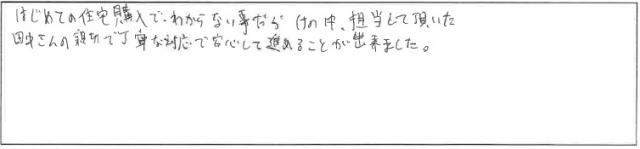 はじめての住宅購入で、わからない事だらけの中、担当して頂いた
田中さんの親切で丁寧な対応で安心して進めることが出来ました。